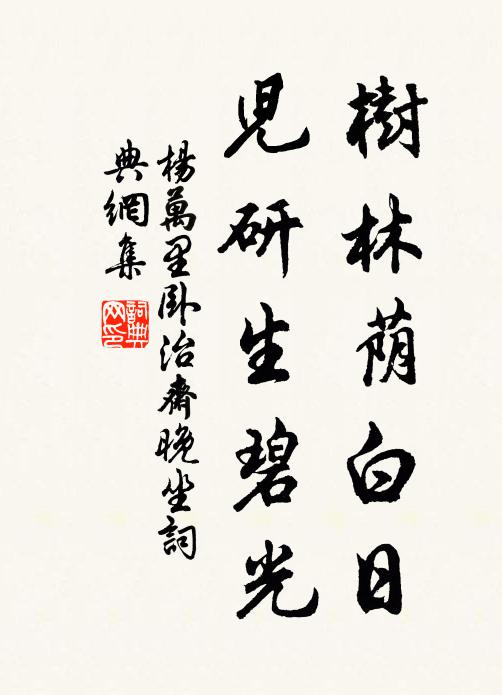 樹林荫白日
児研生碧光
楊萬里卧治齋晚坐詞
典網集
詞典
网印